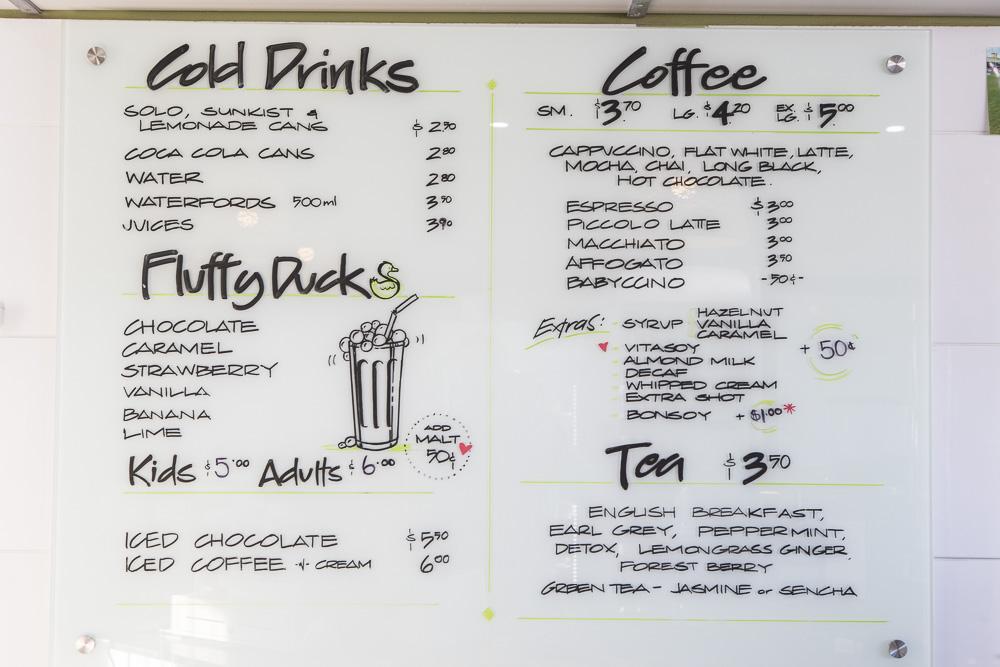 Cold Drinks
SOLO, SUNKIST &
LEMONADE CANS $2.90
COCA COLA CANS 2.80
WATER 2.80
WATERFORDS 500ml 3.50
JUICES 3.90
Fluffy Duck
CHOCOLATE
CARAMEL
STRAWBERRY
VANILLA
BANANA
LIME
ADD
MALT
50¢
Kids $5.00 Adults $6.00
ICED CHOCOLATE $5.50
ICED COFFEE -+/- CREAM 6.00
Coffee
SM. $3.70 LG. $4.20 EX. LG. $5.00
CAPPUCCINO, FLAT WHITE, LATTE,
MOCHA, CHAI, LONG BLACK,
HOT CHOCOLATE.
ESPRESSO $3.00
PICCOLO LATTE 3.00
MACCHIATO 3.00
AFFOGATO 3.50
BABYCCINO -50¢-
Extras: - SYRUP HAZELNUT
VANILLA
CARAMEL
- VITASOY + 50¢
- ALMOND MILK
- DECAF
- WHIPPED CREAM
- EXTRA SHOT
- BONSOY + $1.00*
Tea $3.50
ENGLISH BREAKFAST,
EARL GREY, PEPPERMINT,
DETOX, LEMONGRASS GINGER,
FOREST BERRY
GREEN TEA - JASMINE or SENCHA